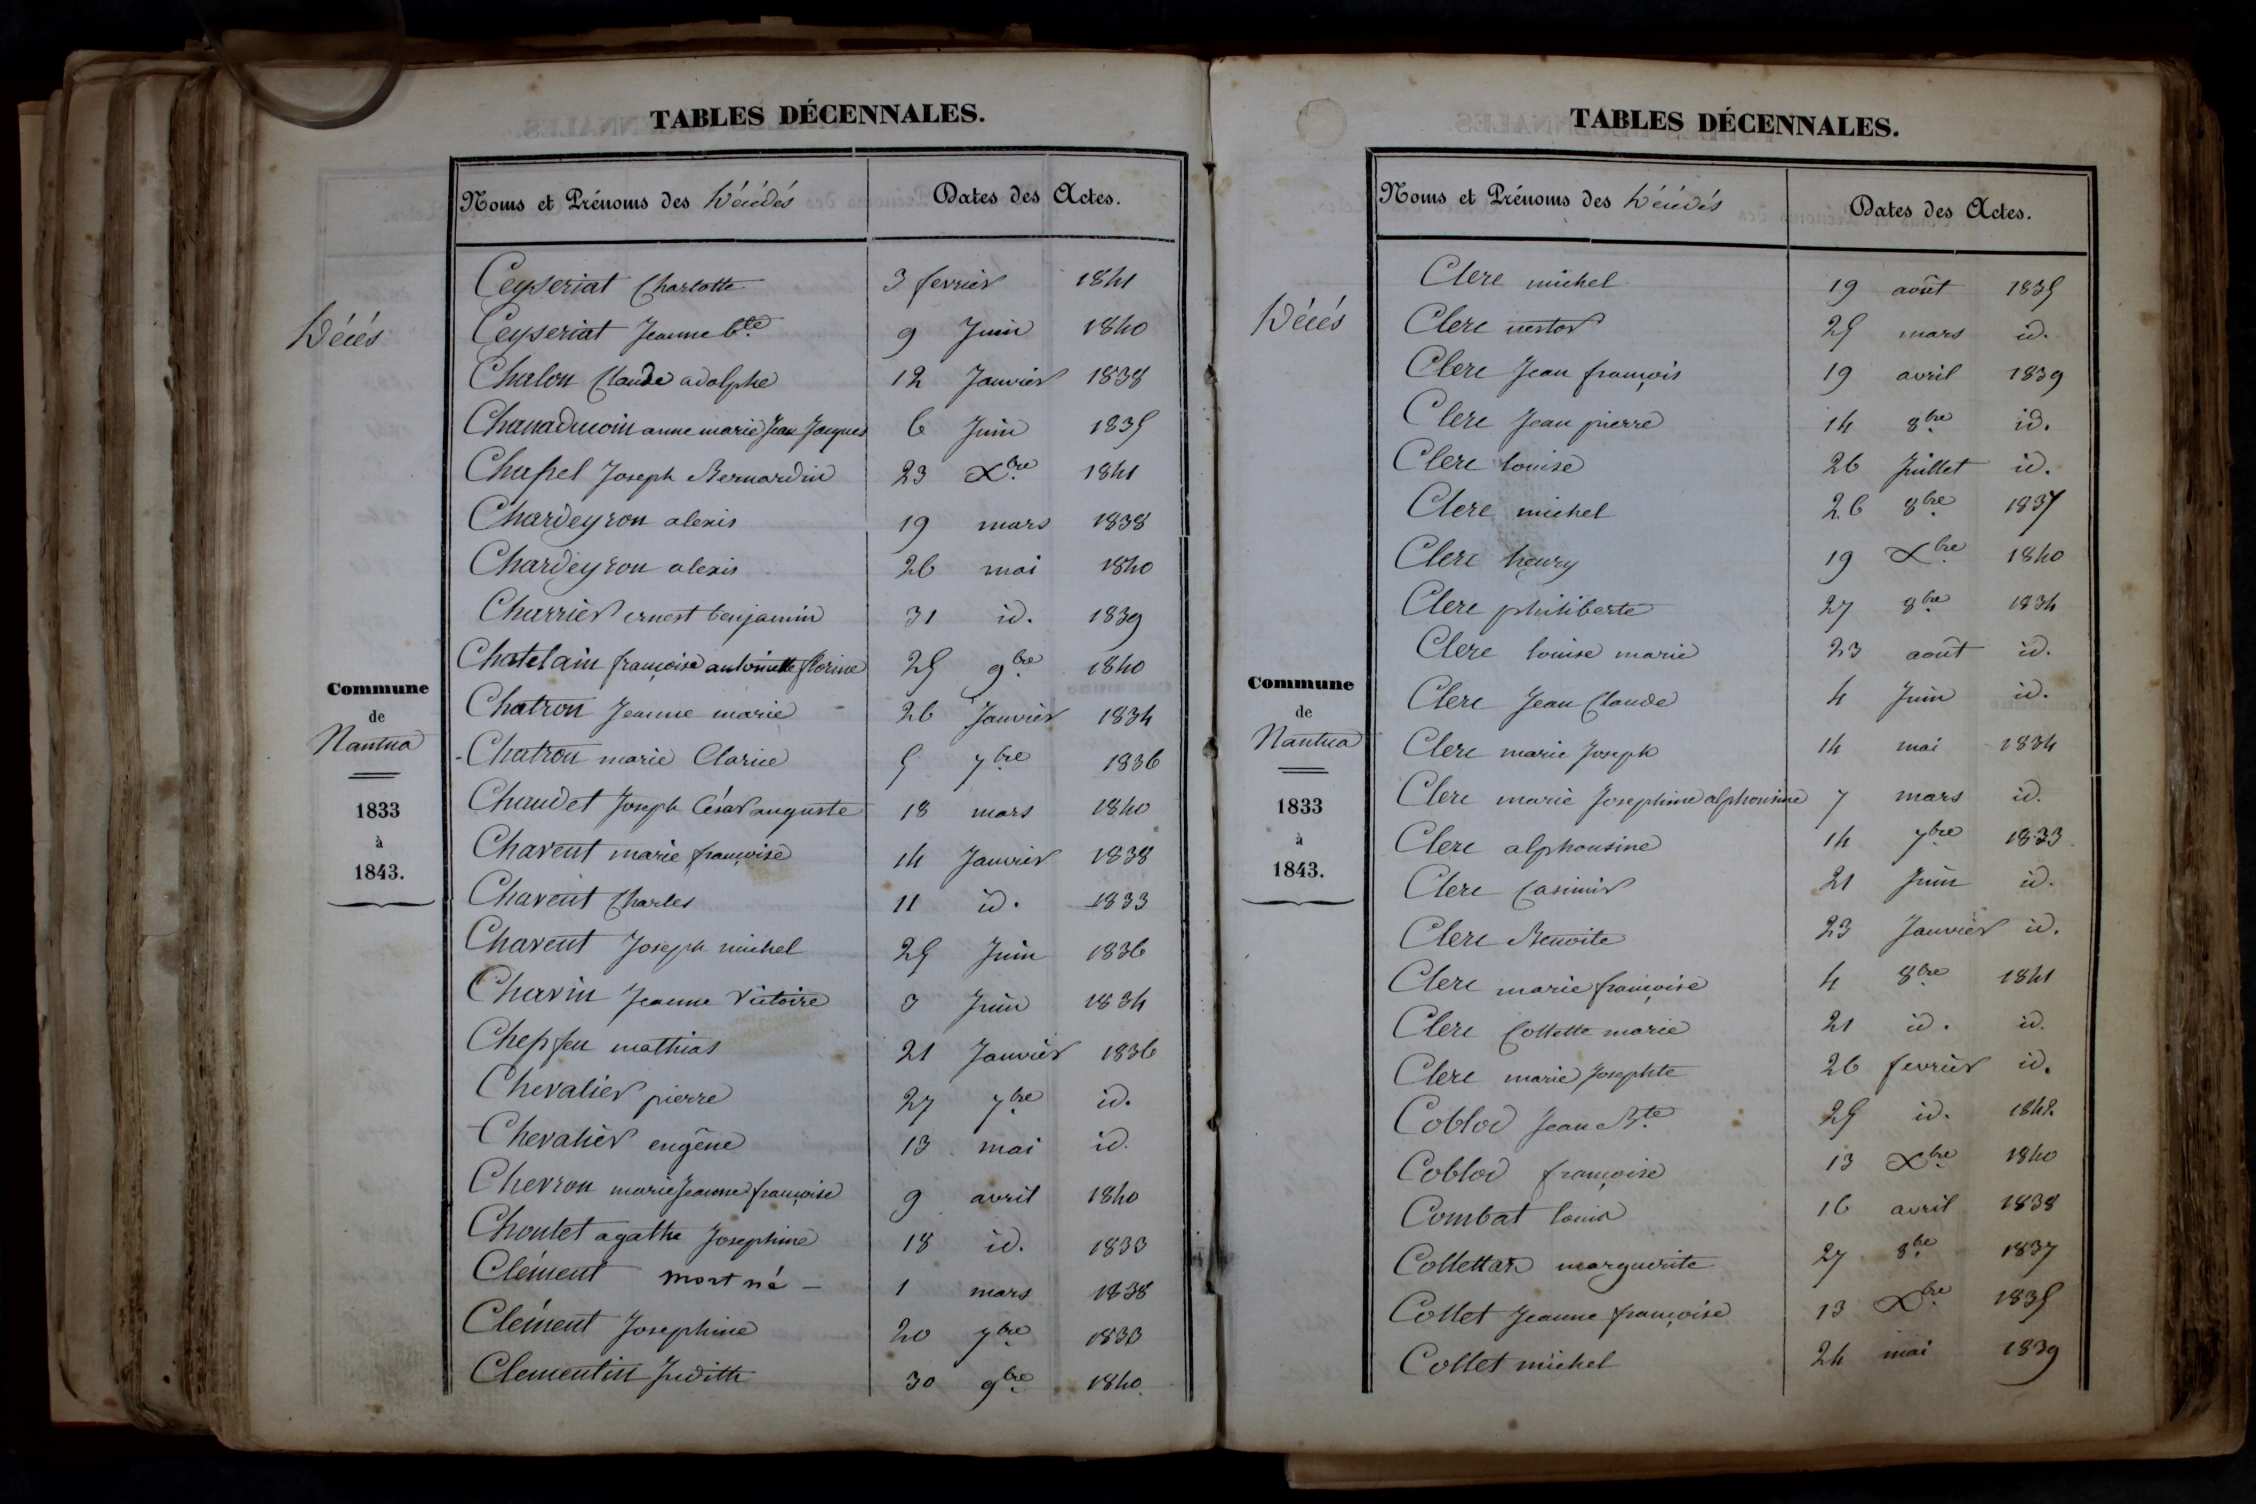 TABLES DÉCENNALES.
Noms et Prénoms des Décédés Dates des Actes.
Décés
Commune
de
Nantua
1833
à
1843.
Ceyseriat Charlotte 3 fevrier 1841
Ceyseriat Jeanne bte 9 Juin 1840
Chalon Claude adolphe 12 Janvier 1838
Chanaducoin anne marie Jean Jacques 6 Juin 1835
Chapel Joseph Bernardin 23 Xbre 1841
Chardeyron alexis 19 mars 1838
Chardeyron alexis 26 mai 1840
Charrier ernest benjamin 31 id. 1839
Chatelain françoise antoinette florine 25 9bre 1840
Chatron Jeanne marie 26 Janvier 1834
Chatron marie Clarice 5 7bre 1836
Chaudet Joseph César auguste 18 mars 1840
Chavent marie françoise 14 Janvier 1838
Chavent Charles 11 id. 1833
Chavent Joseph michel 25 Juin 1836
Chavin Jeanne Victoire 3 Juin 1834
Chepfeu mathias 21 Janvier 1836
Chevalier pierre 27 7bre id.
Chevalier eugêne 13 mai id.
Chevron marie Jeanne françoise 9 avril 1840
Choulet agathe Josephine 18 id. 1833
Clément mort né - 1 mars 1838
Clément Josephine 20 7bre 1833
Clementin Judith 30 9bre 1840
TABLES DÉCENNALES.
Noms et Prénoms des Décédés Dates des Actes.
Décés
Commune
de
Nantua
1833
à
1843.
Clerc michel 19 août 1835
Clerc nestor 25 mars id.
Clerc Jean françois 19 avril 1839
Clerc Jean pierre 14 8bre id.
Clerc louise 26 Juillet id.
Clerc michel 26 8bre 1837
Clerc henry 19 Xbre 1840
Clerc philiberte 27 8bre 1834
Clerc louise marie 23 août id.
Clerc Jean Claude 4 Juin id.
Clerc marie Joseph 14 mai 1834
Clerc marie Josephine alphonsine 7 mars id.
Clerc alphonsine 14 7bre 1833
Clerc Casimir 21 Juin id.
Clerc Benoite 23 Janvier id.
Clerc marie françoise 4 8bre 1841
Clerc Collette marie 21 id. id.
Clerc marie Josephte 26 fevrier id.
Coblod Jean Bte 25 id. 1842
Coblod françoise 13 Xbre 1840
Combat louis 16 avril 1838
Collettaz marguerite 27 8bre 1837
Collet Jeanne françoise 13 Xbre 1835
Collet michel 24 mai 1839